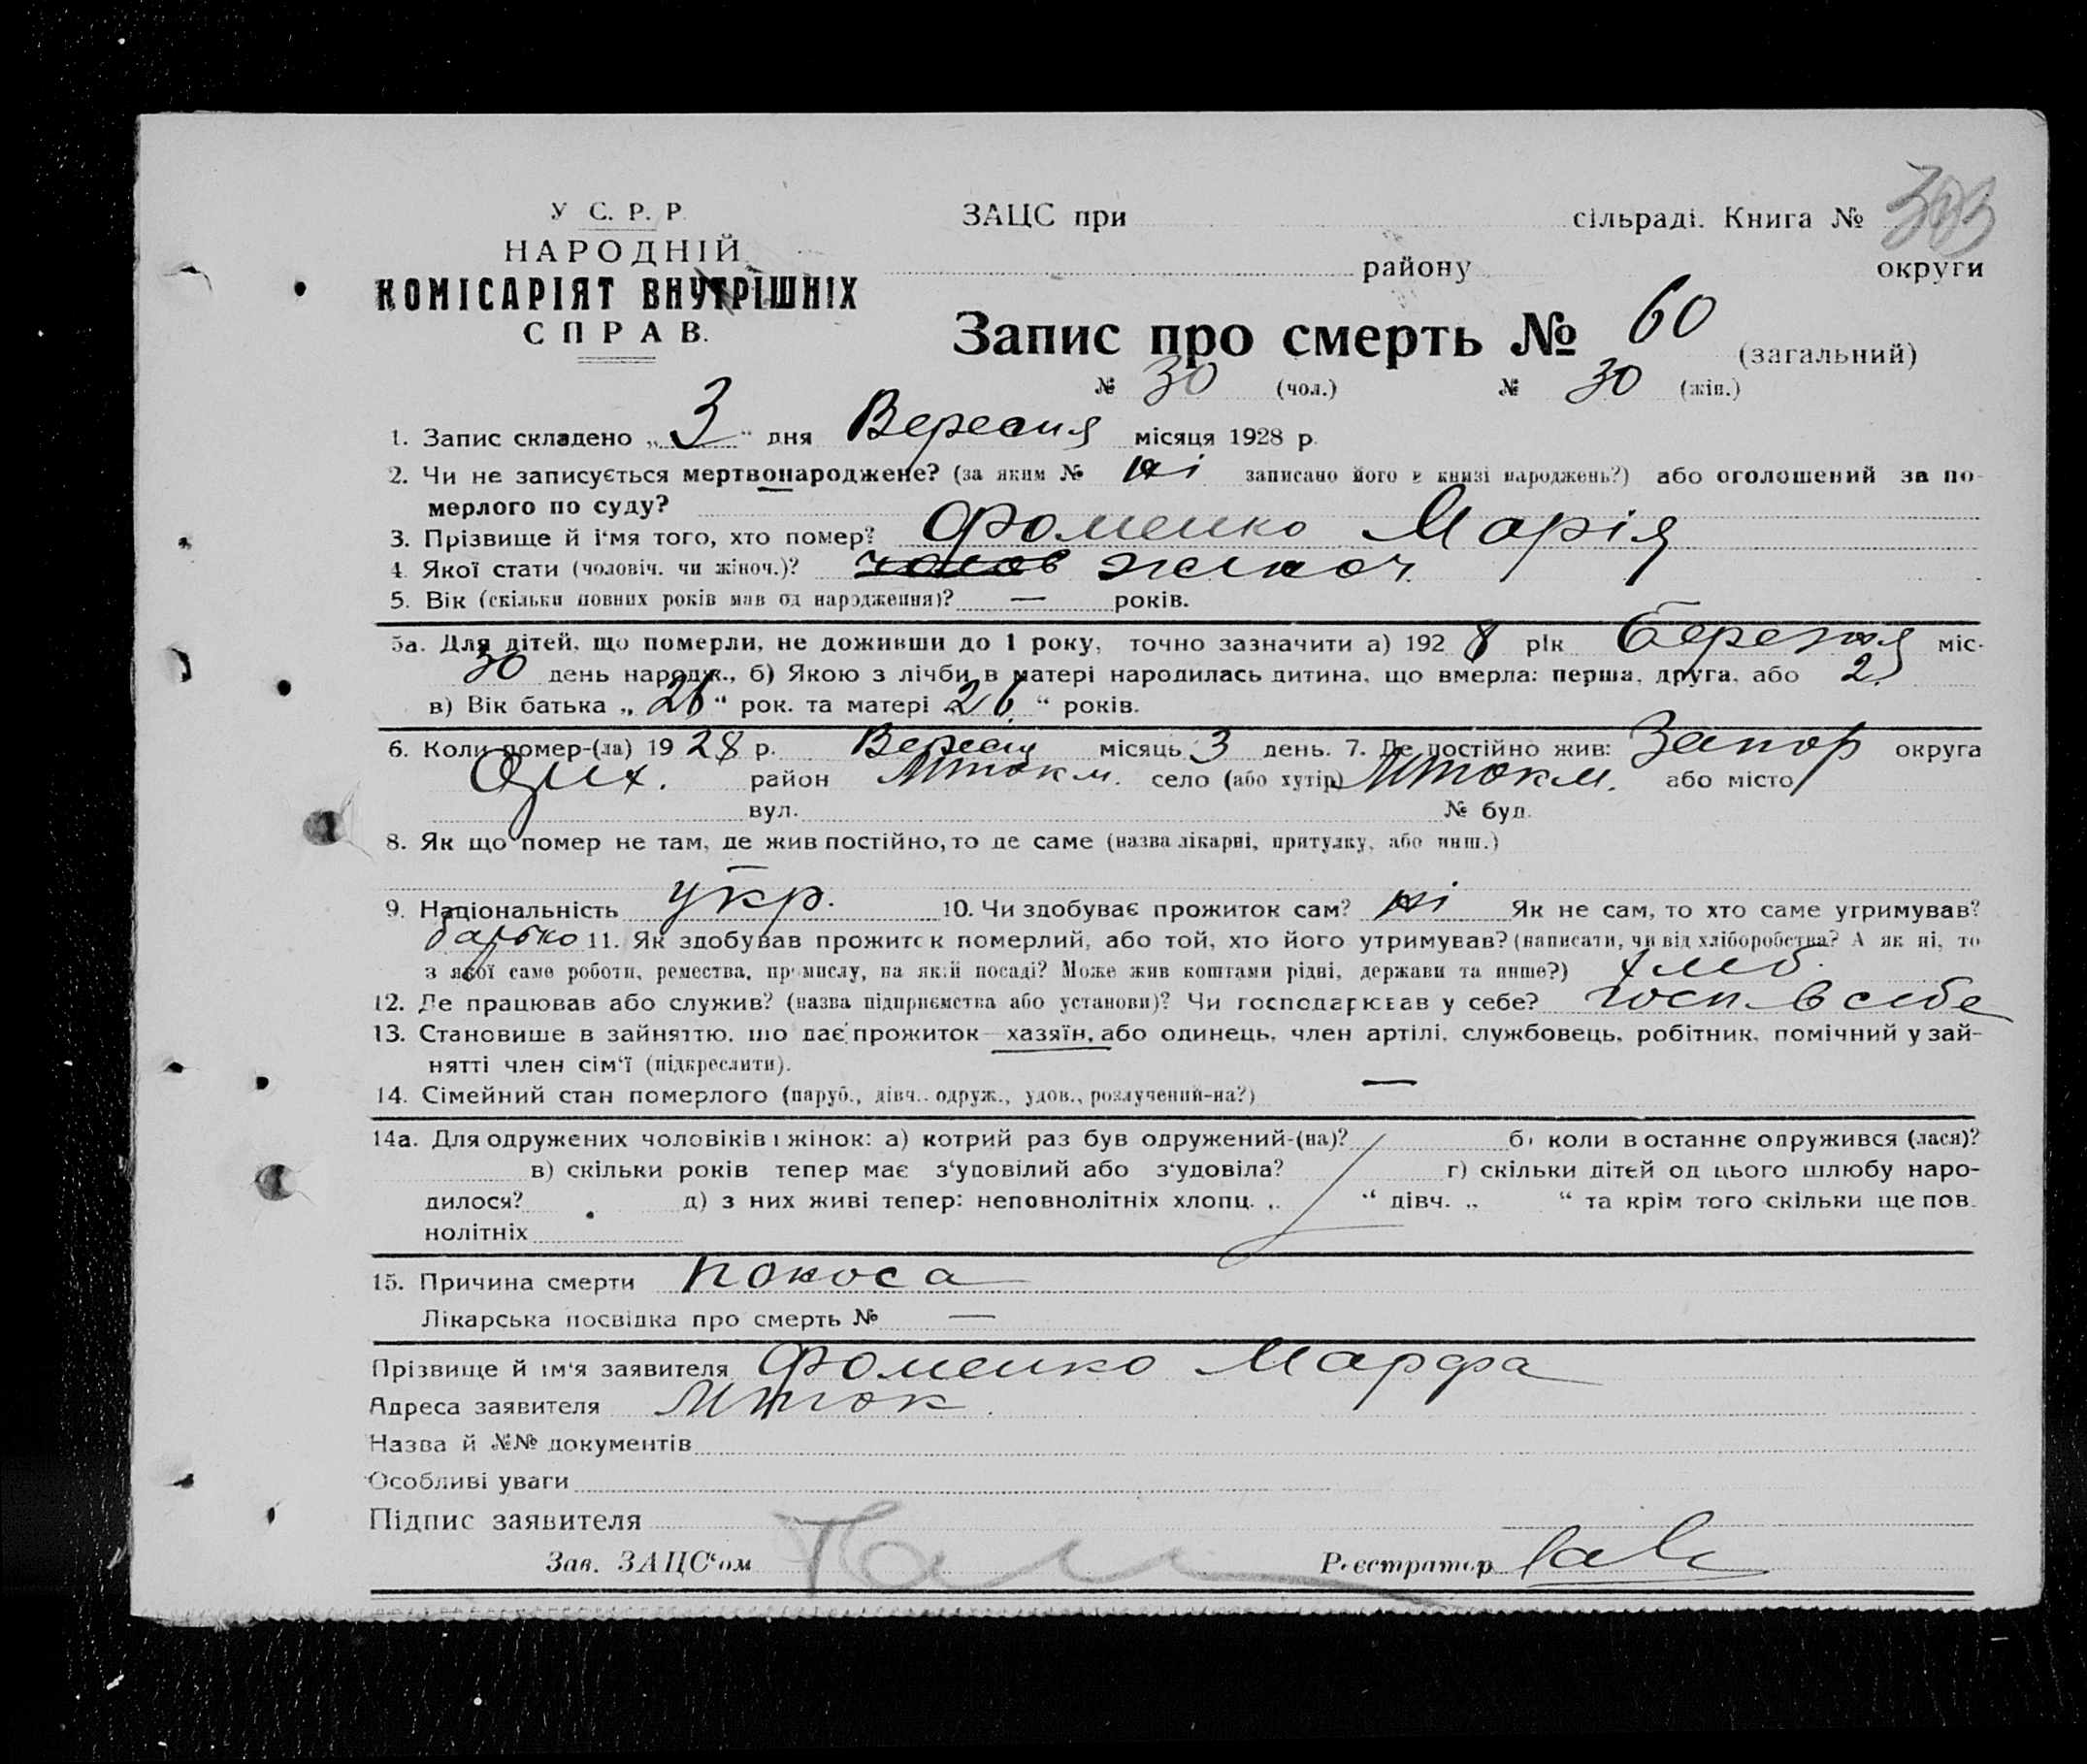 У С. Р. Р.
НАРОДНІЙ
КОМІСАРІЯТ ВНУТРІШНІХ
СПРАВ.
ЗАЦС при сільраді. Книга № 303
району округи
Запис про смерть № 60 (загальний)
№ 30 (чол.) № 30 (жін.)
1. Запис складено „3“ дня Вересня місяця 1928 р.
2. Чи не записується мертвонароджене? (за яким № ні записано його в книзі народжень?) або оголошений за по-
мерлого по суду?
3. Прізвище й і'мя того, хто помер? Фоменко Марія
4. Якої стати (чоловіч. чи жіноч.)? чолов жіноч
5. Вік (скільки повних років мав од народження)? — років.
5а. Для дітей, що померли, не доживши до 1 року, точно зазначити а) 1928 рік березня міс.
30 день народж., б) Якою з лічби в матері народилась дитина, що вмерла: перша, друга, або 2
в) Вік батька „26“ рок. та матері „26“ років.
6. Коли помер-(ла) 1928 р. Вересня місяць 3 день. 7. Де постійно жив: Запор округа
Оріх. район Мткм. село (або хутір) або місто
вул. № буд.
8. Як що помер не там, де жив постійно, то де саме (назва лікарні, притулку, або инш.)
9. Національність укр. 10. Чи здобуває прожиток сам? ні Як не сам, то хто саме утримував?
батько 11. Як здобував прожиток померлий, або той, хто його утримував? (написати, чи від хліборобства? А як ні, то
з якої саме роботи, ремества, промислу, на якій посаді? Може жив коштами рідні, держави та инше?) хліб.
12. Де працював або служив? (назва підприємства або установи)? Чи господарював у себе? госп в себе
13. Становище в зайняттю, що дає прожиток—хазяїн, або одинець, член артілі, службовець, робітник, помічний у зай-
нятті член сім'ї (підкреслити).
14. Сімейний стан померлого (паруб., дівч., одруж., удов., розлучений-на?) —
14а. Для одружених чоловіків і жінок: а) котрий раз був одружений-(на)? б) коли в останнє одружився (лася)?
в) скільки років тепер має з'удовілий або з'удовіла? г) скільки дітей од цього шлюбу наро-
дилося? д) з них живі тепер: неповнолітніх хлопц. „ “ дівч. „ “ та крім того скільки ще пов-
нолітніх
15. Причина смерти поноса
Лікарська посвідка про смерть № —
Прізвище й ім'я заявителя Фоменко Марфа
Адреса заявителя
Назва й №№ документів
Особливі уваги
Підпис заявителя
Зав. ЗАЦС'ом Реєстратор